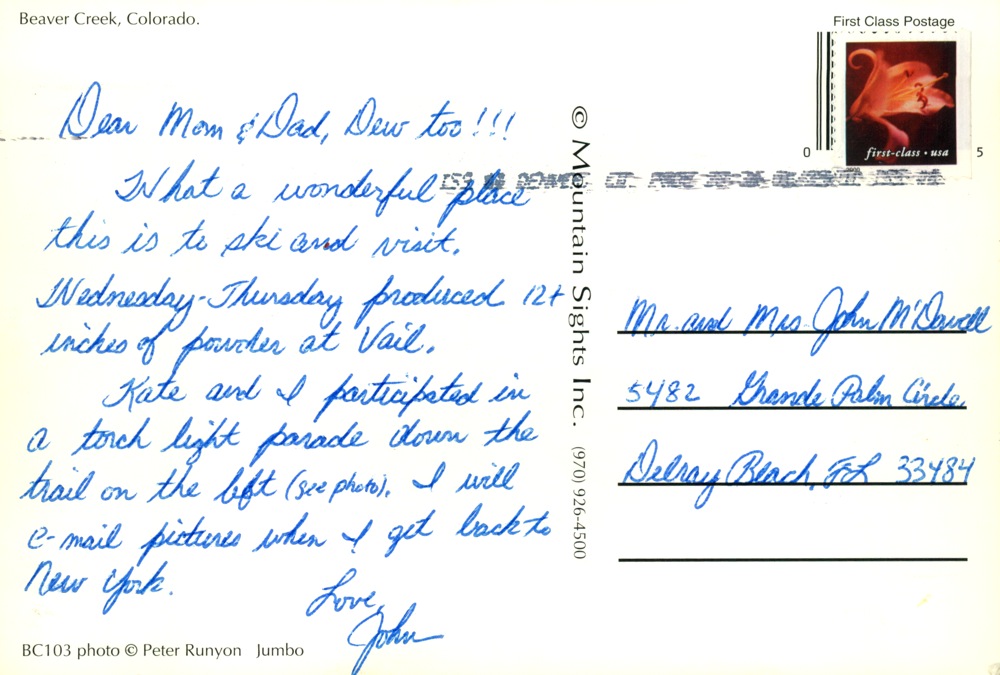 Beaver Creek, Colorado.
First Class Postage
first-class • usa
0 5
Dear Mom & Dad, Dew too!!!
What a wonderful place
this is to ski and visit.
Wednesday-Thursday produced 12+
inches of powder at Vail.
Kate and I participated in
a torch light parade down the
trail on the left (see photo). I will
e-mail pictures when I get back to
New York.
Love,
John
© Mountain Sights Inc. (970) 926-4500
Mr. and Mrs. John McDowell
5482 Grande Palm Circle
Delray Beach, FL 33484
BC103 photo © Peter Runyon Jumbo